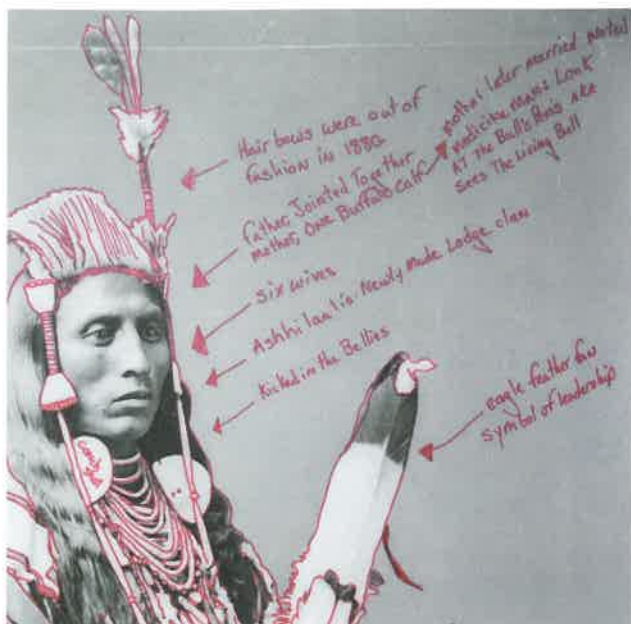 Hair bows were out of
fashion in 1880
father, Jointed Together
mother, One Buffalo calf
mother later married noted
medicine man: Look
At The Bull's Penis AKA
Sees The Living Bull
six wives
Newly Made Lodge clan
Kicked in the Bellies
eagle feather fan
symbol of leadership
conch shell